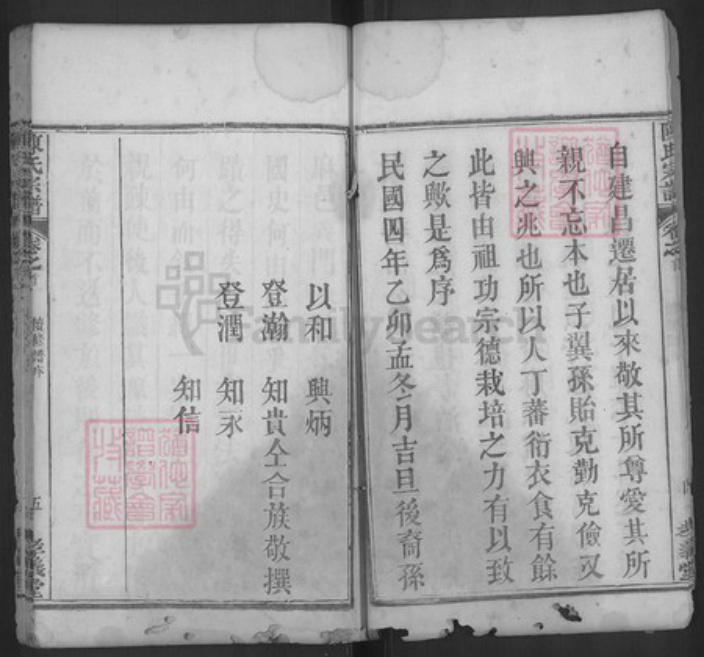 自建昌遷居以來敬其所尊愛其所
親不忘本也子翼孫貽克勤克儉又
興之兆也所以人丁蕃衍衣食有餘
此皆由祖功宗德栽培之力有以致
之歟是爲序
民國四年乙卯孟冬月吉旦後裔孫
以和 興炳
登瀚 知貴仝合族敬撰
登潤 知永
知信
陳氏宗譜 卷之首 五
FamilySearch